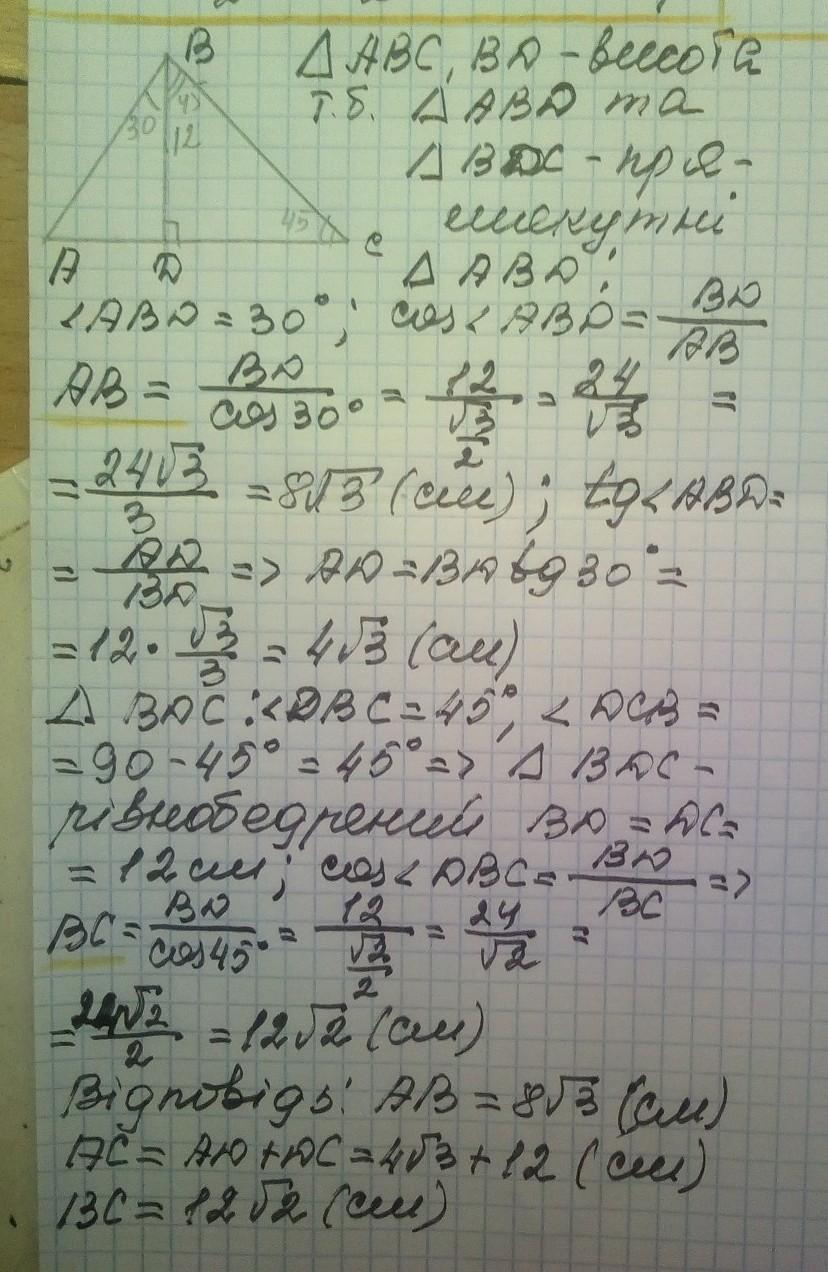 B
△ ABC, BD - висота
45
т.б. △ ABD та
30
12
△ BDC - пря-
45
мокутні
A D C
△ ABD:
<ABD = 30°; cos<ABD = BD/AB
AB = BD/cos30° = 12/(√3/2) = 24/√3 =
= 24√3/3 = 8√3 (см); tg<ABD=
= AD/BD => AD = BD tg30° =
= 12 · √3/3 = 4√3 (см)
△ BDC: <DBC = 45°, <DCB =
= 90 - 45° = 45° => △ BDC -
рівнобедрений BD = DC =
= 12 см; cos<DBC = BD/BC =>
BC = BD/cos45° = 12/(√2/2) = 24/√2 =
= 24√2/2 = 12√2 (см)
Відповідь: AB = 8√3 (см)
AC = AD + DC = 4√3 + 12 (см)
BC = 12√2 (см)